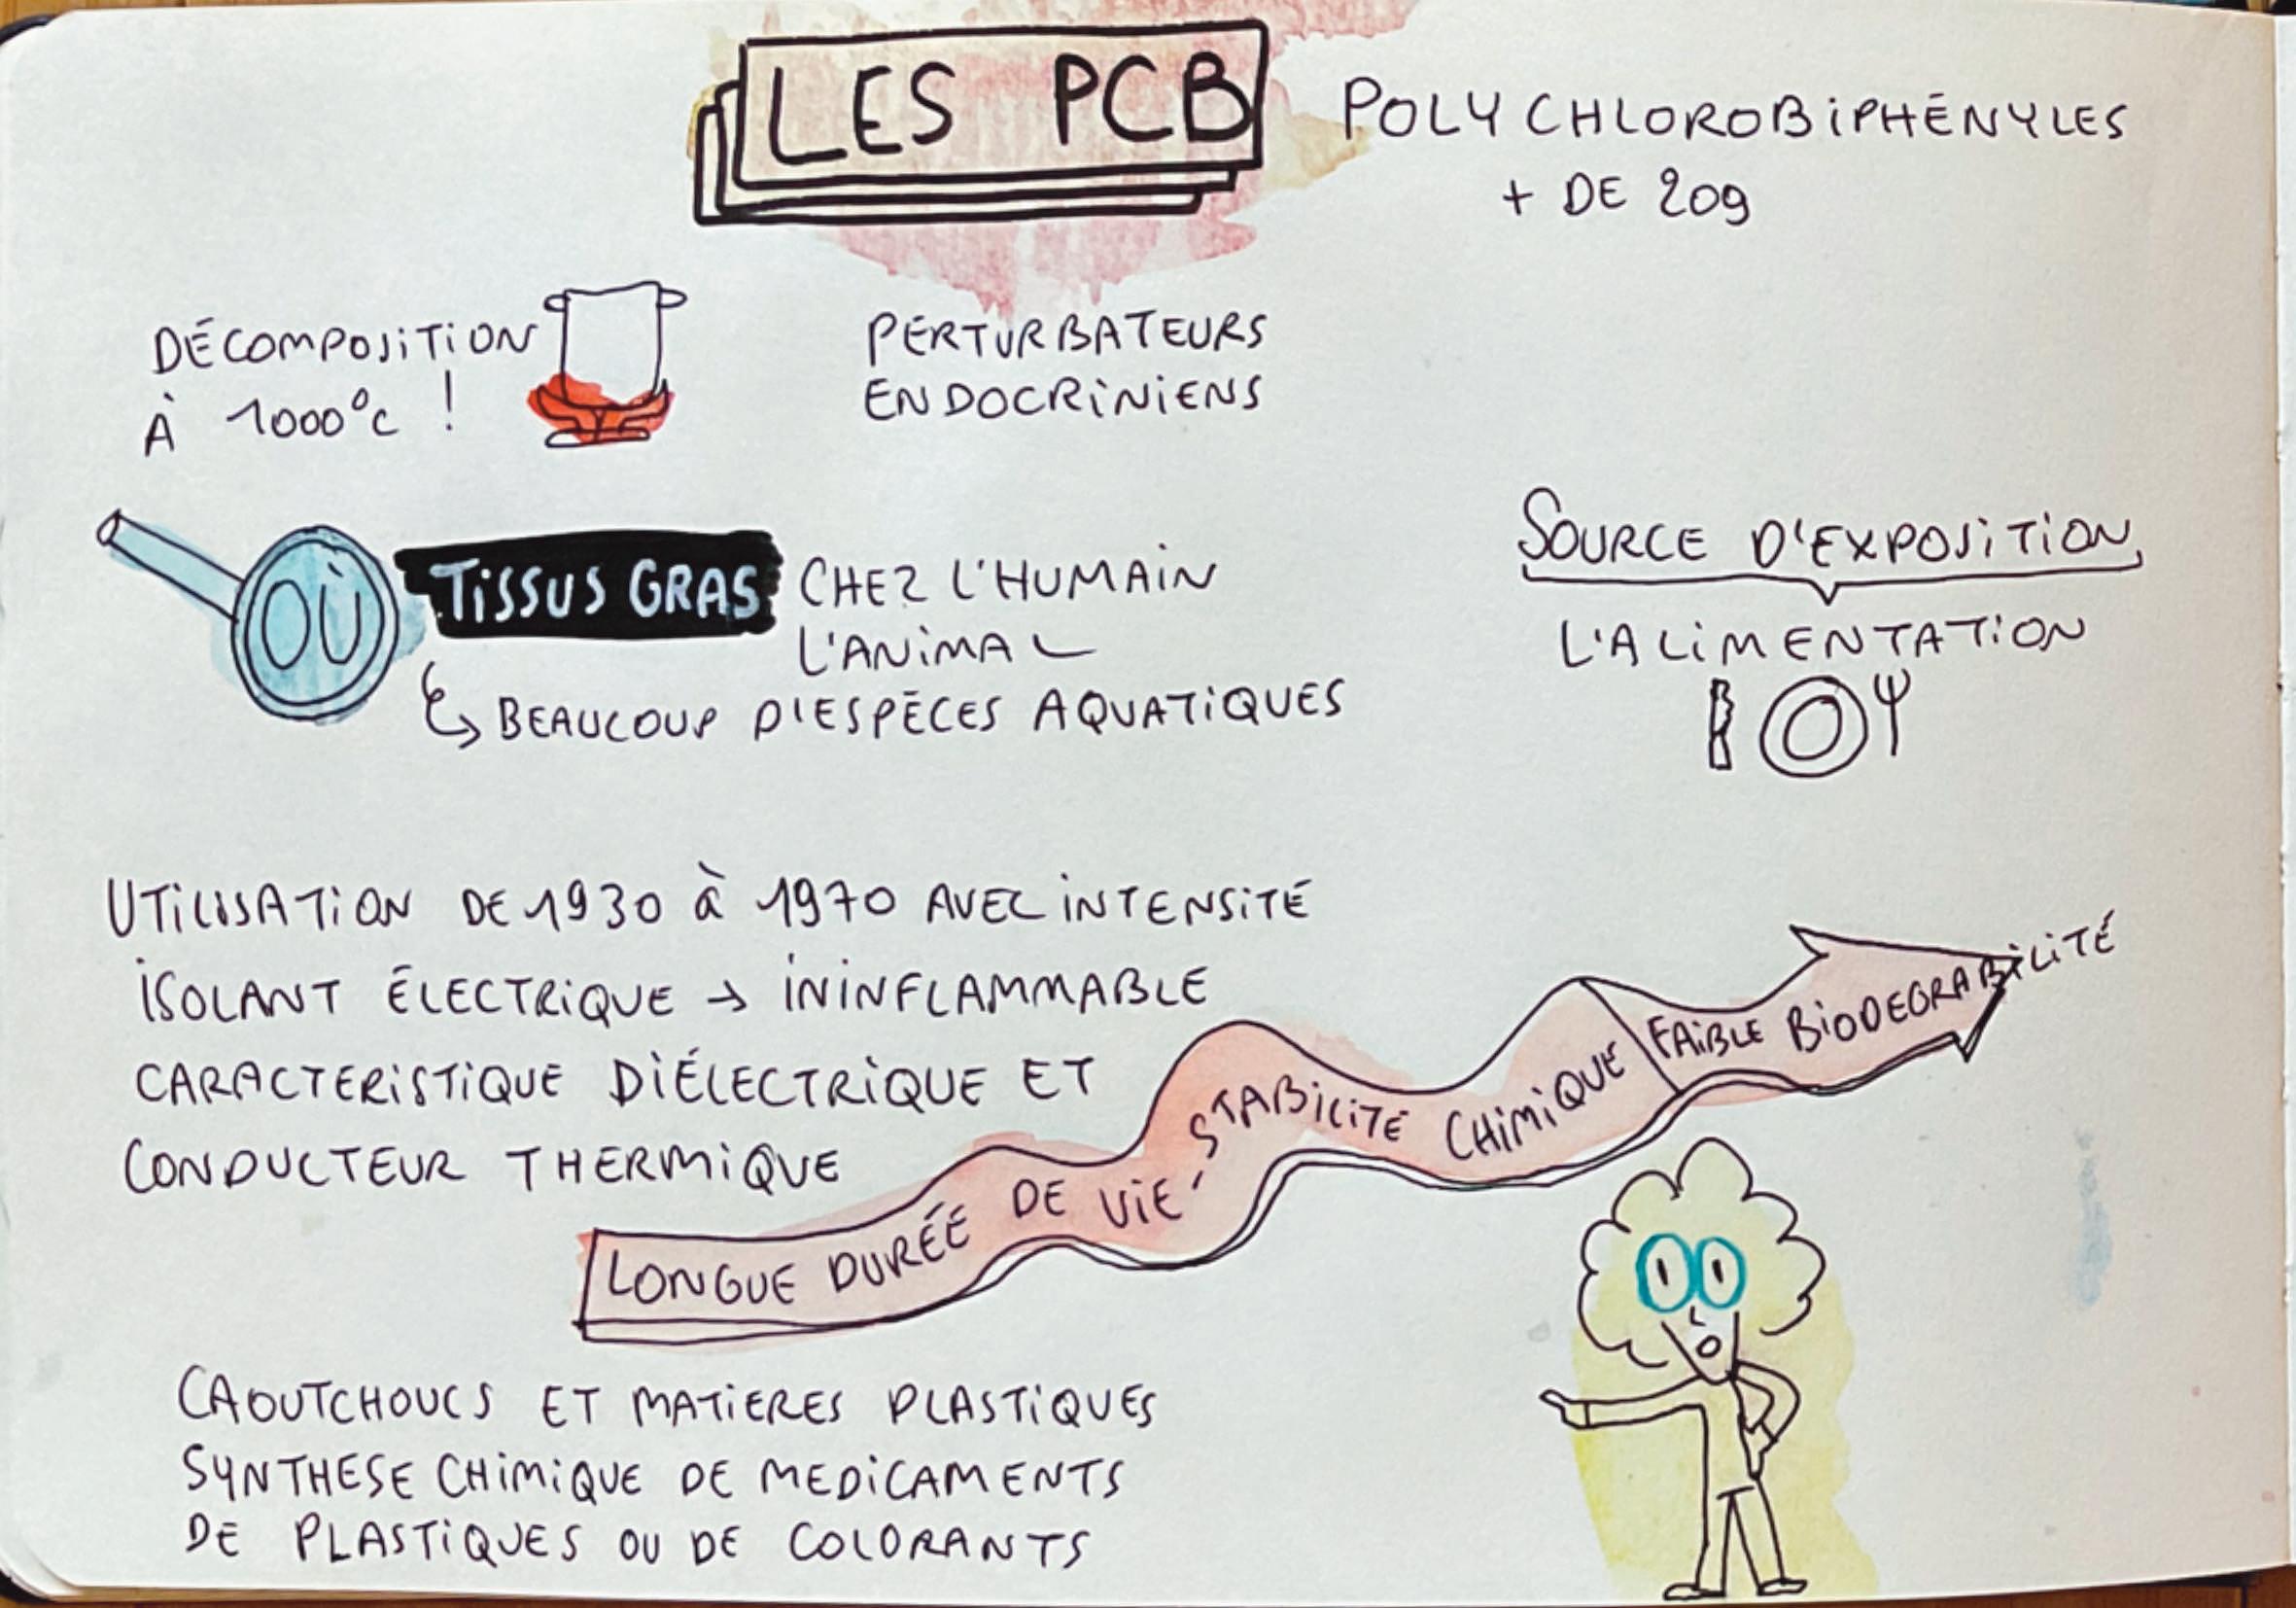 LES PCB
POLYCHLOROBIPHÉNYLES
+ DE 209
DÉCOMPOSITION
À 1000°C !
PERTURBATEURS
ENDOCRINIENS
OÙ
TISSUS GRAS CHEZ L'HUMAIN
L'ANIMAL
BEAUCOUP D'ESPÈCES AQUATIQUES
SOURCE D'EXPOSITION
L'ALIMENTATION
UTILISATION DE 1930 à 1970 AVEC INTENSITÉ
ISOLANT ÉLECTRIQUE → ININFLAMMABLE
CARACTERISTIQUE DIÉLECTRIQUE ET
CONDUCTEUR THERMIQUE
LONGUE DURÉE DE VIE - STABILITÉ CHIMIQUE FAIBLE BIODEGRABILITÉ
CAOUTCHOUCS ET MATIERES PLASTIQUES
SYNTHESE CHIMIQUE DE MEDICAMENTS
DE PLASTIQUES OU DE COLORANTS